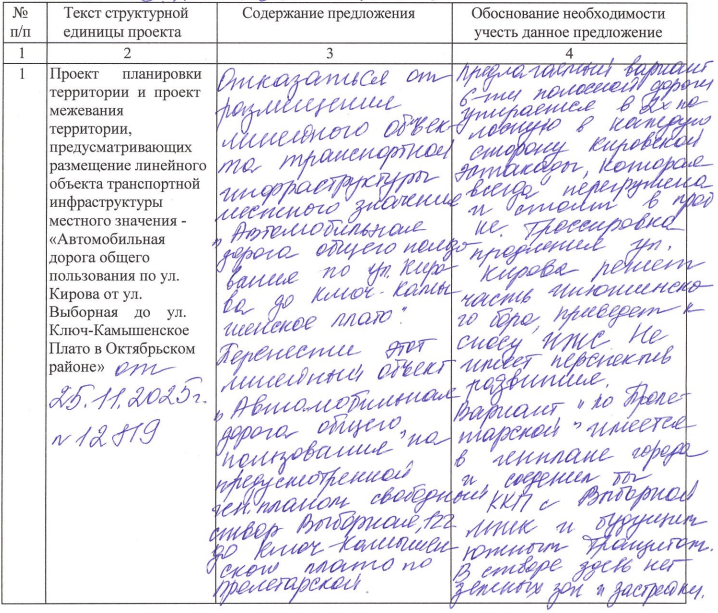 № п/п
Текст структурной единицы проекта
Содержание предложения
Обоснование необходимости учесть данное предложение
1
2
3
4
1
Проект планировки
территории и проект
межевания
территории,
предусматривающих
размещение линейного
объекта транспортной
инфраструктуры
местного значения -
«Автомобильная
дорога общего
пользования по ул.
Кирова от ул.
Выборная до ул.
Ключ-Камышенское
Плато в Октябрьском
районе» от
25.11.2025г.
№12819
Отказаться от
размещение
линейного объек-
та транспортной
инфраструктуры
местного значения
"Автомобильная
дорога общего пользо
вания по ул. Киро-
ва до Ключ-Камы-
шенское плато".
Перенести этот
линейный объект
"Автомобильная
дорога общего
пользования" на
предусмотренной
ген.планом свободный
створ Выборная,122
до Ключ-Камышен-
ском плато по
Пролетарской.
Предлагаемый вариант
6-ти полосной дороги
упирается в 2х по
лосную в каждую
сторону Кировской
эстакады, которая
всегда перегружена
и стоит в проб
ке. Трассировка
продления ул.
Кирова решит
часть
го бора, приведет к
сносу ИЖС. Не
имеет перспектив
развития.
Вариант "по Проле-
тарской" имеется
в генплане города
и соединил бы
ККП с Выборной
МЖК и будущим
южным транзитом.
В створе здесь нет
зеленых зон и застройки.